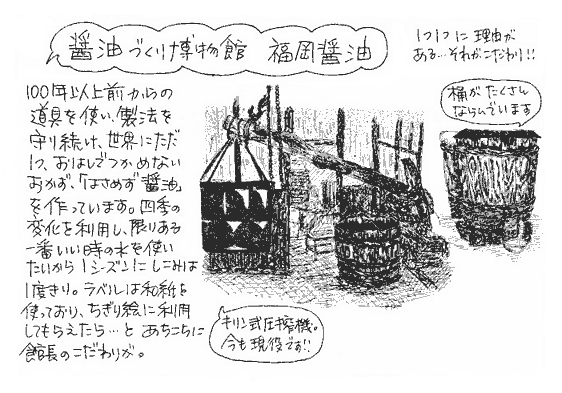 醤油づくり博物館 福岡醤油
1つ1つに理由が
ある…それがこだわり!!
100年以上前からの
道具を使い、製法を
守り続け、世界にただ
1つ、おはしでつかめない
おかず、「はさめず」醤油
を作っています。四季の
変化を利用し、限りある
一番いい時の水を使い
たいから1シーズンにしこみは
1度きり。ラベルは和紙を
使っており、ちぎり絵に利用
してもらえたら…と あちこちに
館長のこだわりが。
桶がたくさん
ならんでいます
キリン式圧搾機。
今も現役です!!